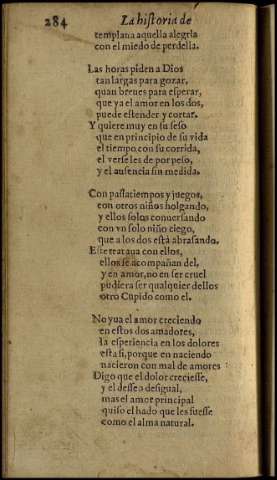 284 La historia de
templana aquella alegria
con el miedo de perdella.
Las horas piden a Dios
tan largas para gozar,
quan breues para esperar,
que ya el amor en los dos,
puede estender y cortar.
Y quiere muy en su seso
que en principio de su vida
el tiempo, con su corrida,
el verse les de por peso,
y el ausencia sin medida.
Con passatiempos y juegos,
con otros niños holgando,
y ellos solos conuersando
con vn solo niño ciego,
que a los dos està abrasando.
Este trataua con ellos,
ellos se acompañan del,
y en amor, no en ser cruel
pudiera ser qualquier dellos
otro Cupido como el.
No yua el amor creciendo
en estos dos amadores,
la esperiencia en los dolores
esta si, porque en naciendo
nacieron con mal de amores
Digo que el dolor creciesse,
y el desseo desigual,
mas el amor principal
quiso el hado que les fuesse
como el alma natural.